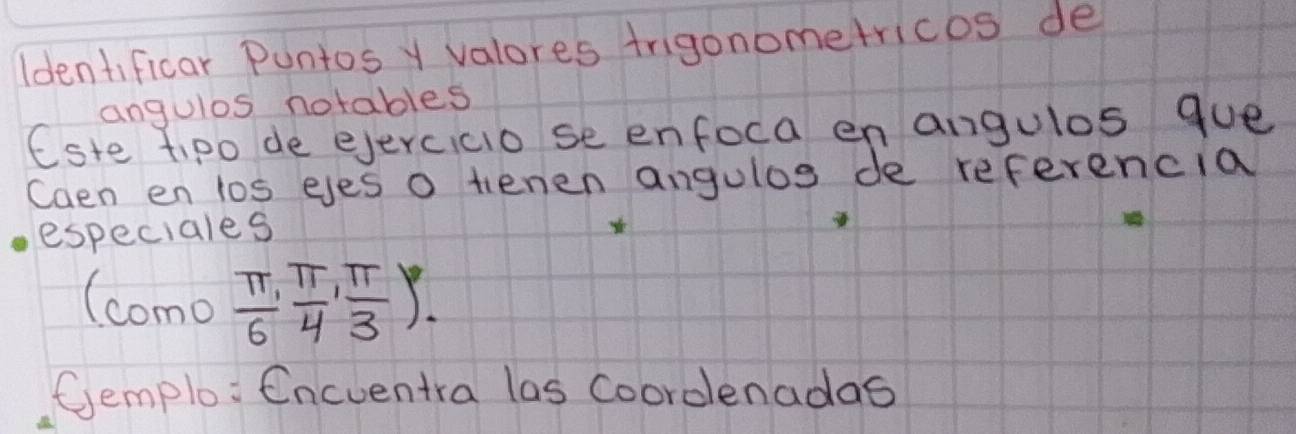 Identificar Puntos y valores trigonometricos de
angulos notables
Este tipo de ejercicio se enfoca en angulos que
Caen en los ejes o tienen angulos de referencia
especiales
(como π/6, π/4, π/3).
Ejemplo: Encuentra las Coordenadas